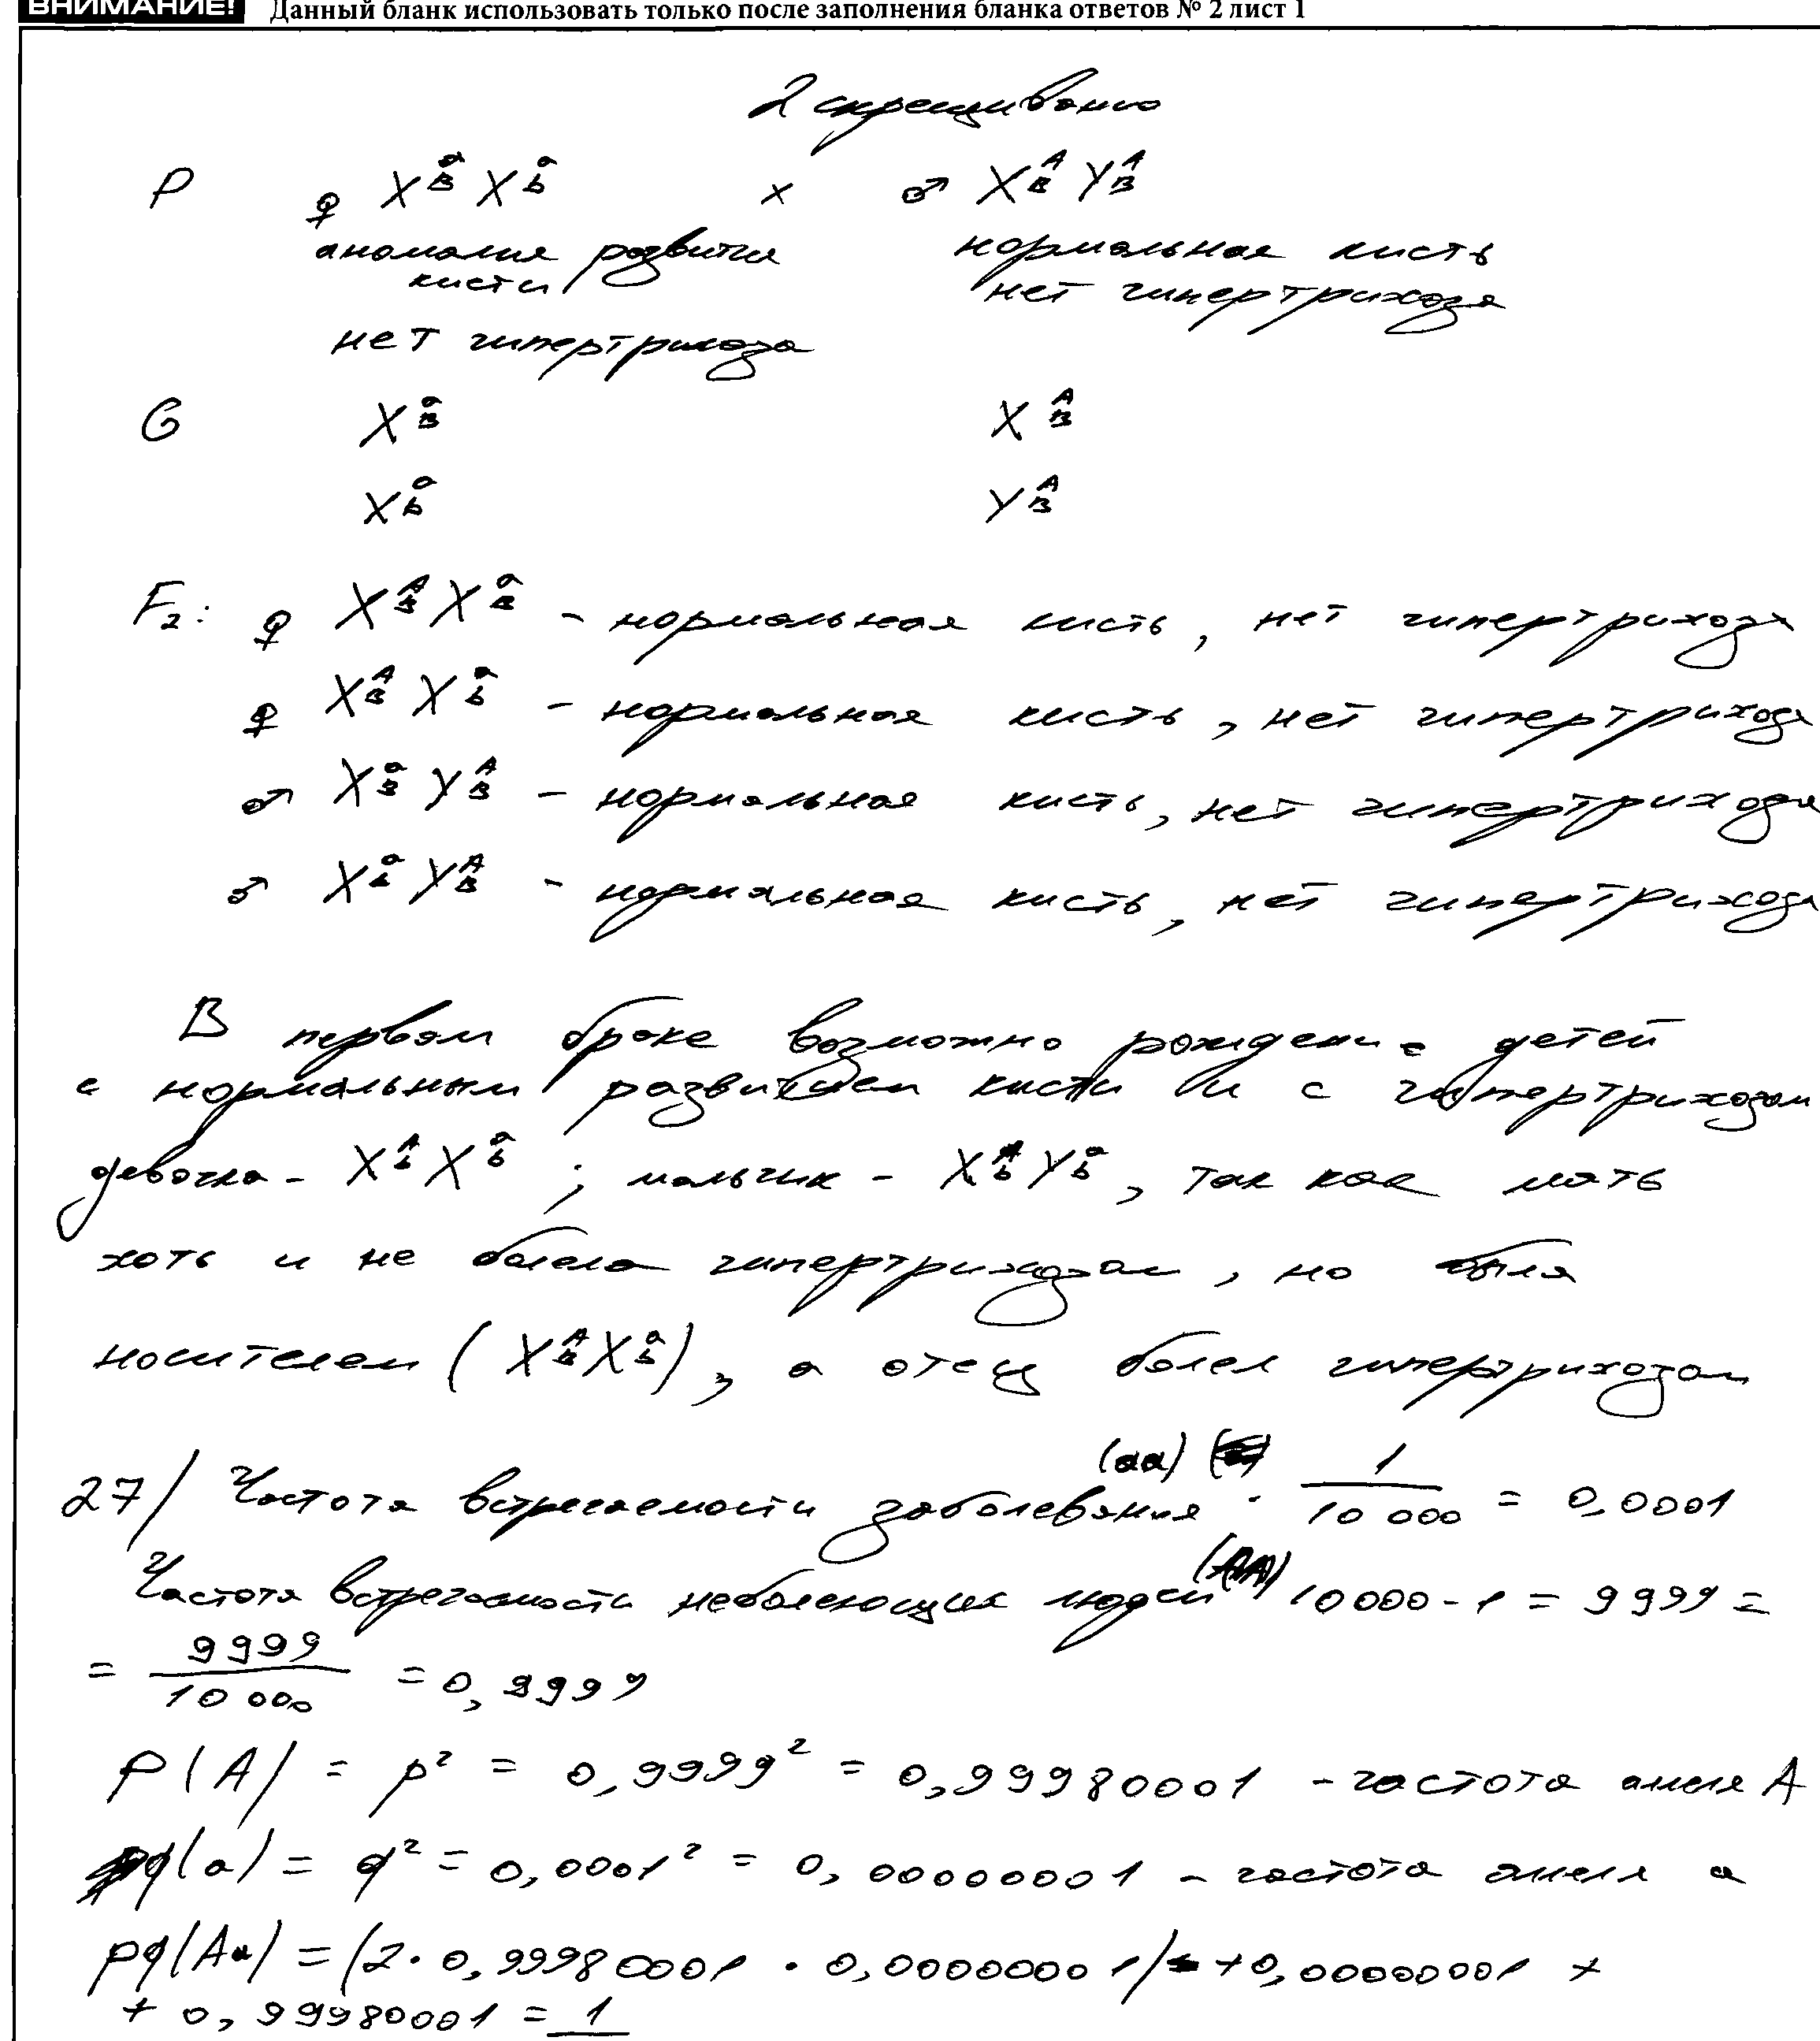 ВНИМАНИЕ! Данный бланк использовать только после заполнения бланка ответов № 2 лист 1
2 скрещивание
P ♀ X^a_B X^a_b × ♂ X^A_B Y^A_B
аномалия развития нормальная кисть
кисти нет гипертрихоза
нет гипертрихоза
G X^a_B X^A_B
X^a_b Y^A_B
F2: ♀ X^A_B X^a_B – нормальная кисть, нет гипертрихоза
♀ X^A_B X^a_b – нормальная кисть, нет гипертрихоза
♂ X^a_B Y^A_B – нормальная кисть, нет гипертрихоза
♂ X^a_b Y^A_B – нормальная кисть, нет гипертрихоза
В первом браке возможно рождение детей
с нормальным развитием кисти и с гипертрихозом
девочка – X^A_b X^a_b ; мальчик – X^A_b Y^a_b, так как мать
хоть и не болела гипертрихозом, но была
носителем (X^A_B X^a_b), а отец болел гипертрихозом
27) Частота встречаемости заболевания (aa) · 1/10 000 = 0,0001
Частота встречаемости неболеющих людей (AA) 10000 - 1 = 9999 =
= 9999/10 000 = 0,9999
P(A) = p² = 0,9999² = 0,99980001 – частота аллеля A
q(a) = q² = 0,0001² = 0,00000001 – частота аллеля a
pq(Aa) = (2 · 0,99980001 · 0,00000001) + 0,00000001 +
+ 0,99980001 = 1